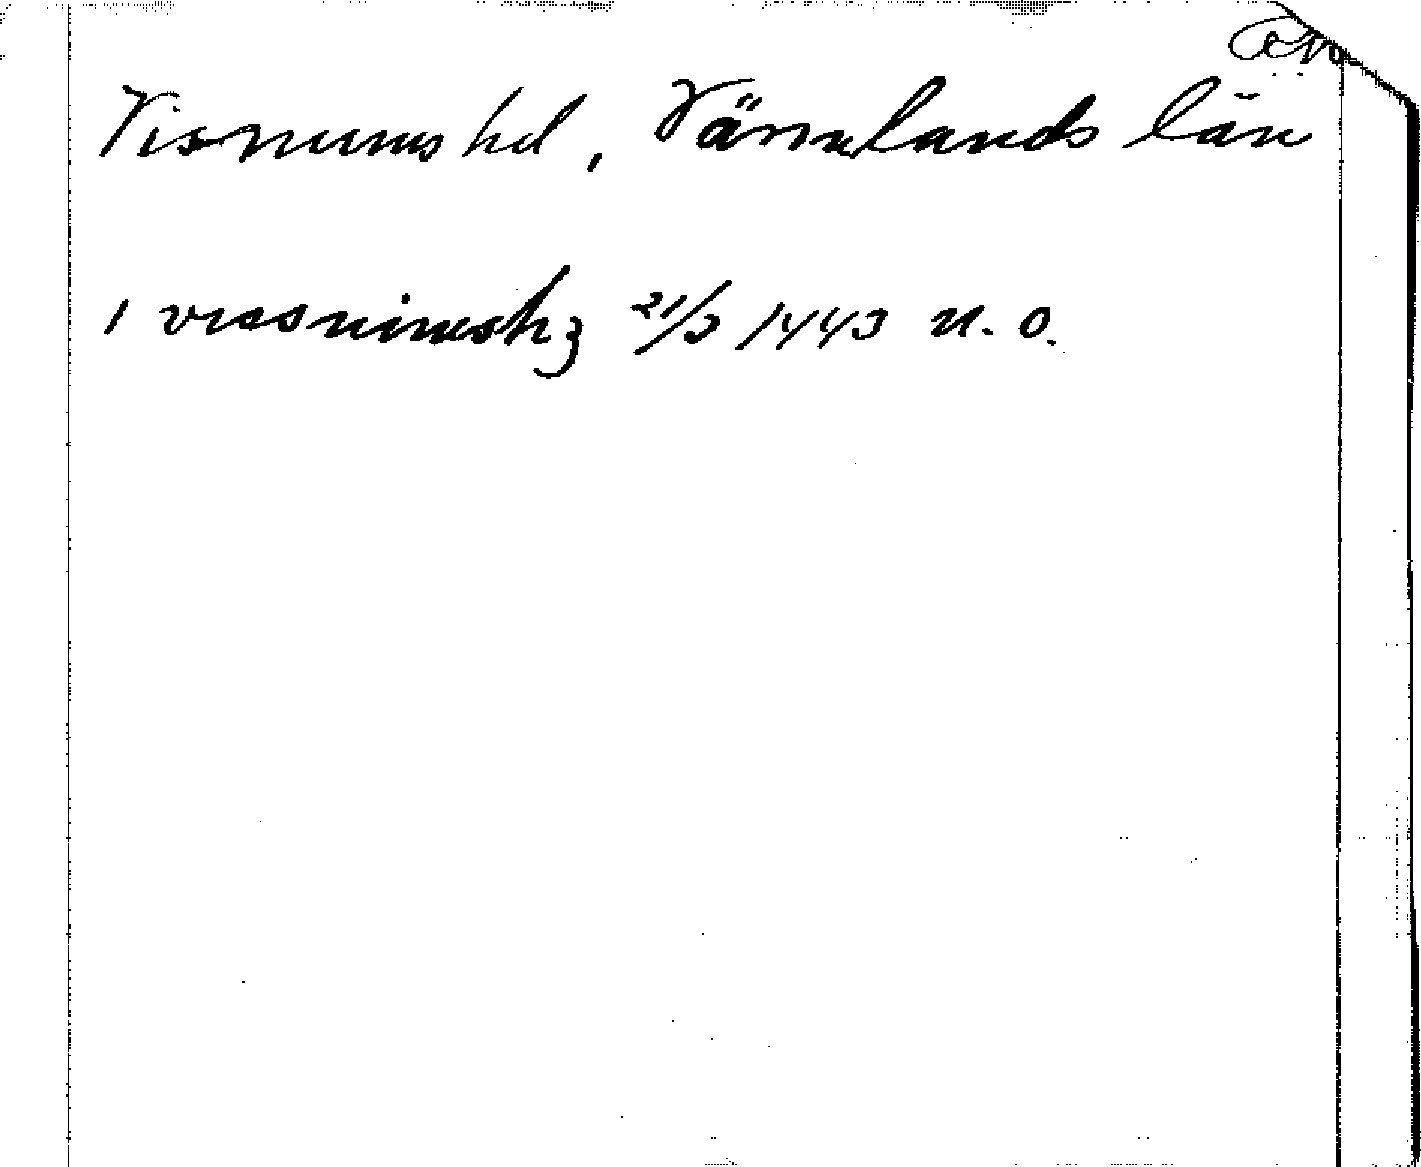 Visnums hd, Värmlands län
i vissnimshz 21/3 1443 n. O.